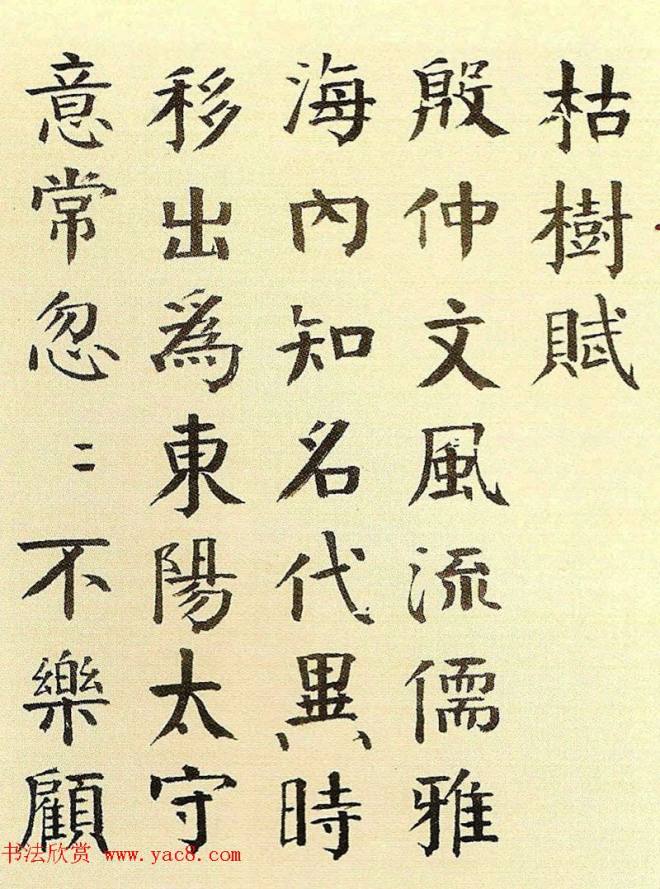 枯樹賦
殷仲文風流儒雅
海內知名代異時
移出為東陽太守
意常忽〻不樂顧
书法欣赏 www.yac8.com